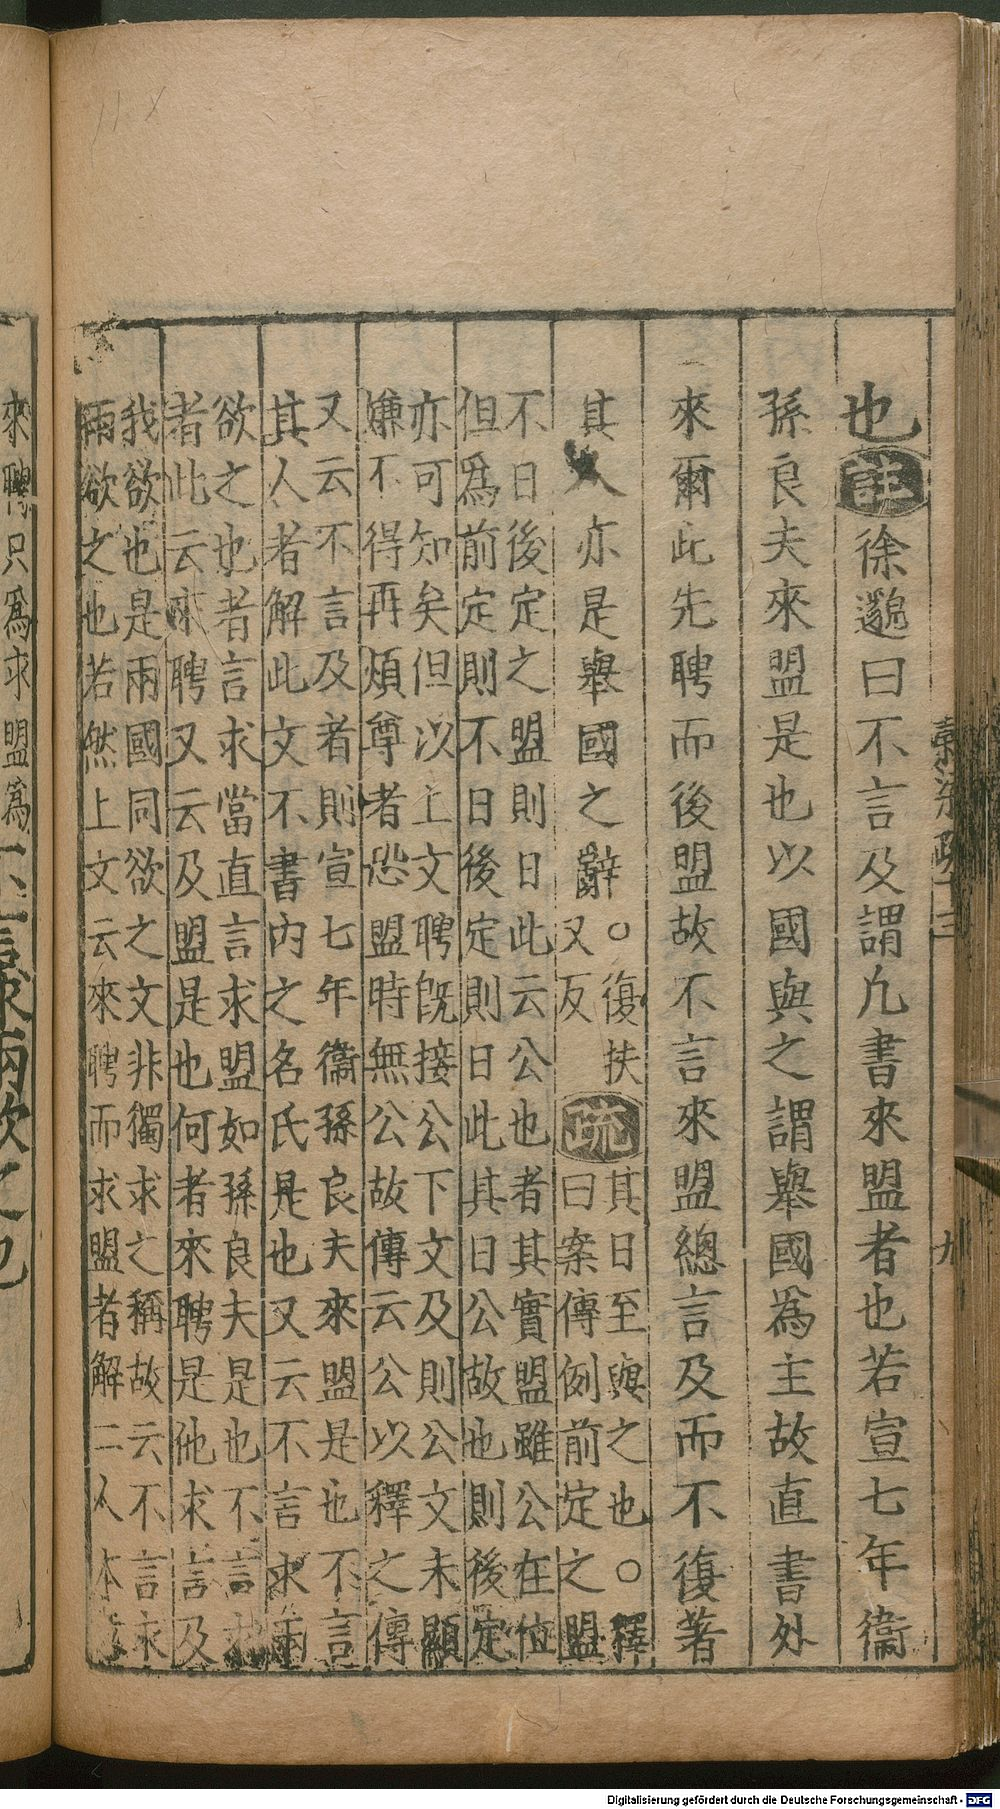 也註徐邈曰不言及謂凡書來盟者也若宣七年衞
孫良夫來盟是也以國與之謂舉國為主故直書外
來爾此先聘而後盟故不言來盟總言及而不復著
其人亦是舉國之辭○復扶
又反
疏其日至與之也○釋
曰案傳例前定之盟
不日後定之盟則日此云公也者其實盟雖公在位
但爲前定則不日後定則日此其日公故也則後定
亦可知矣但以上文聘旣接公下文及則公文未顯
嫌不得再煩尊者恐盟時無公故傳云公以釋之傳
又云不言及者則宣七年衞孫良夫來盟是也不言
其人者解此文不書内之名氏是也又云不言求兩
欲之也者言求當直言求盟如孫良夫是也不言求
者此云來聘又云及盟是也何者來聘是他求言及
我欲也是兩國同欲之文非獨求之稱故云不言求
兩欲之也若然上文云來聘而求盟者解二人本
來聘只爲求盟爲
不言求兩欲之也
九
Digitalisierung gefördert durch die Deutsche Forschungsgemeinschaft - DFG